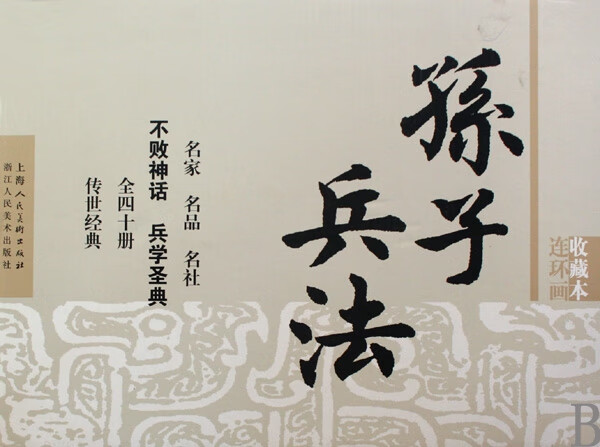 收藏本
连环画
孫子
兵法
名家 名品 名社
不败神话 兵学圣典
全四十册
传世经典
上海人民美術出版社
浙江人民美术出版社
B